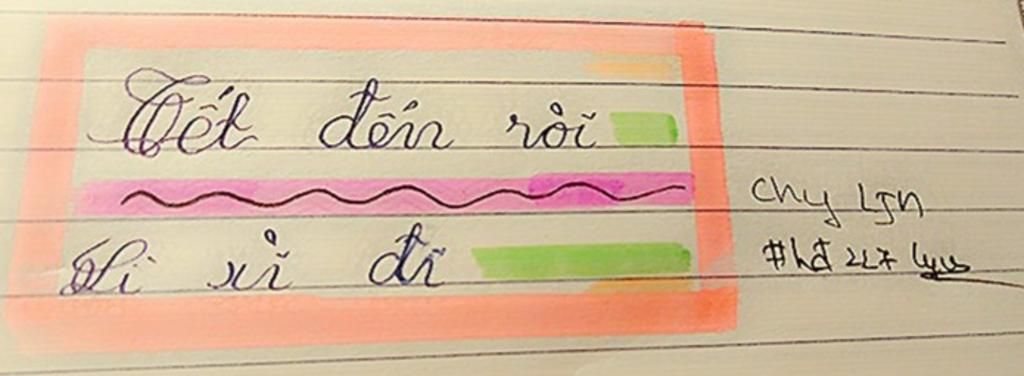 Tết đến rồi
Lì xì đi
Chy
#hđ 227